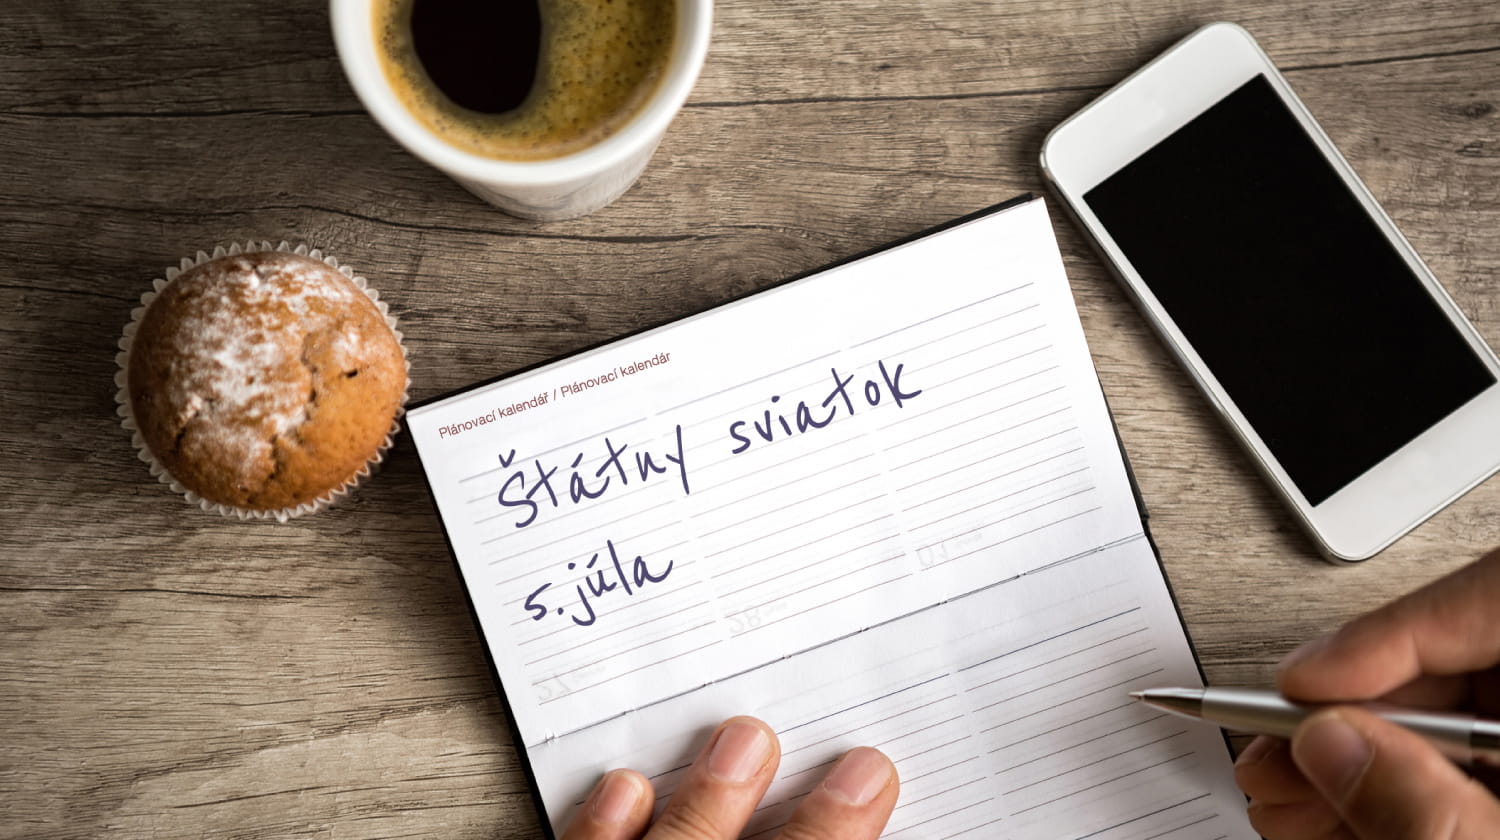 Plánovací kalendář / Plánovací kalendár
Štátny sviatok
5. júla
28
01
27